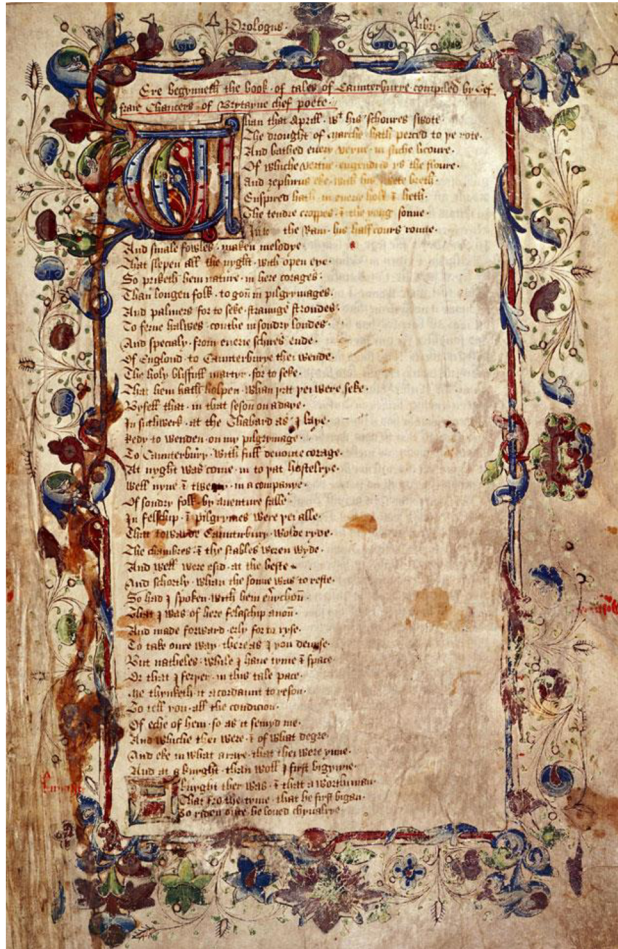 Prologus · libri ·
Eye begynneth the book · of tales of Caunterburye compiled by Gef
fraie Chaucers · of Brytayne chef poete ·
Whan that Aprill · wt his schoures swote
The drought of marche hath perced to ye rote
And bathed euery veyne · in suche licoure ·
Of whiche vertue engendred is the floure ·
And zephirus eke with his swete breth
Enspired hath in euerie holt & heth ·
The tendre croppes · & the yong sonne
the Ram · his half cours ronne ·
And smale fowles · maken melodye ·
That slepen all the nyght · with open eye ·
So priketh hem nature · in here corages ·
Than longen folk · to gon in pilgrymages ·
And palmers for to seke · straunge strondes ·
To serue halwes · couthe in sondry londes ·
And specialy · from euerie schires ende ·
Of Englond to Caunterburye thei wende ·
The holy blisfull martyr · for to seke ·
That hem hath holpen · whan þat þei were seke ·
Byfell that · in that seson on a daye ·
In suthwerk · at the Thabard as I laye ·
Redy to wenden · on my pilgrymage ·
To Caunterbury · with full deuoute corage ·
At nyght was come · in to þat hostelrye ·
Well nyne & twenty · in a companye ·
Of sondry folk · by auenture falle
In felschip · & pilgrymes were þei alle ·
That towarde Caunterbury · wolde ryde ·
The chambres · & the stables weren wyde ·
And well were esid · at the beste ·
And schortly · whan the sonne was to reste ·
So had I spoken · with hem euerychon ·
That I was of here felaschip anon ·
And made forward · erly for to ryse ·
To take oure way · there as I you deuise ·
But natheles · while I haue tyme & space
Or that I ferþer · in this tale pace ·
Me thynketh it acordaunt to reson ·
To tell you · all the condicion ·
Of eche of hem · so as it semyd me ·
And whiche thei were · & of what degre ·
And eke in what araye · that thei were ynne ·
And at a knyght · than woll I first bigynne ·
A knyght ther was · & that a worthi man ·
That fro the tyme · that he first bigan ·
To riden oute · he loued chyualrye ·